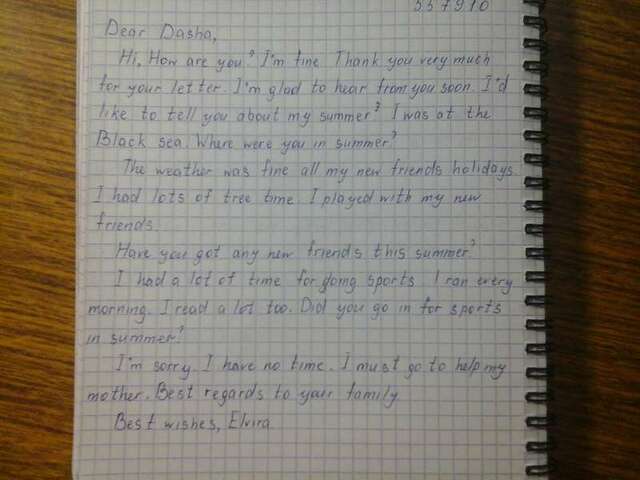 557910
Dear Dasha,
Hi, How are you? I'm fine Thank you very much
for your letter. I'm glad to hear from you soon. I'd
like to tell you about my summer? I was at the
Black sea. Where were you in summer?
The weather was fine all my new friends holidays.
I had lots of tree time. I played with my new
friends.
Have you got any new friends this summer?
I had a lot of time for going sports I ran every
morning. I read a lot too. Did you go in for sports
in summer?
I'm sorry. I have no time. I must go to help my
mother. Best regards to your family
Best wishes, Elvira